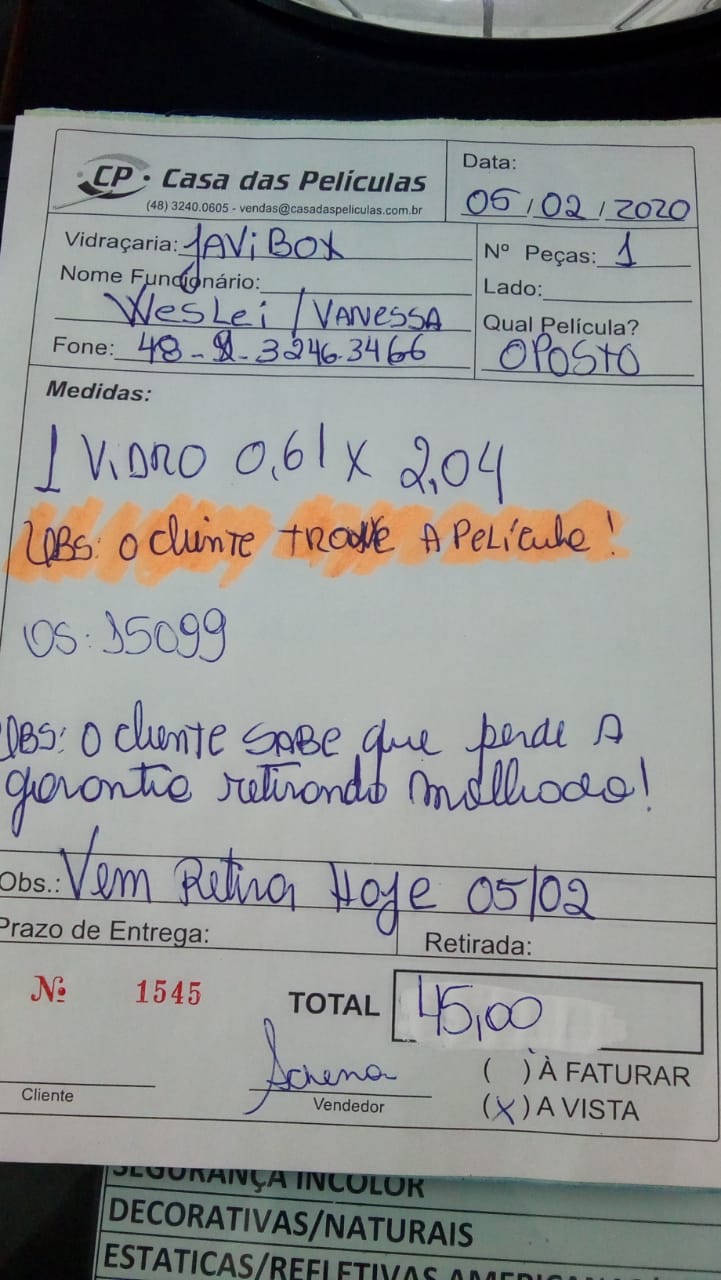 CP • Casa das Películas
(48) 3240.0605 - vendas@casadaspeliculas.com.br
Data:
05/02/2020
Vidraçaria: JAVI BOX
Nº Peças: 1
Nome Funcionário:
Lado:
Weslei / VANESSA
Qual Película?
Fone: 48-9-3246.3466
OPOSTO
Medidas:
1 VIDRO 0,61 X 2,04
OBS: O cliente TROUXE A Película!
OS: 15099
OBS: O cliente SABE que perde A
garantia retirando molhado!
Obs.: Vem Retirar Hoje 05/02
Prazo de Entrega:
Retirada:
Nº 1545
TOTAL 45,00
( ) À FATURAR
Cliente
Vendedor
(X) A VISTA
SEGURANÇA INCOLOR
DECORATIVAS/NATURAIS
ESTATICAS/REFLETIVAS